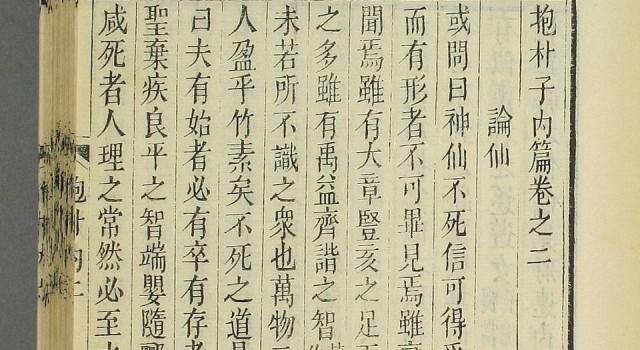 抱朴子内篇卷之二
論仙
或問曰神仙不死信可得
而有形者不可畢見焉雖
聞焉雖有大章豎亥之足
之多雖有禹益齊諧之智
未若所不識之衆也萬物
人盈乎竹素矣不死之道
曰夫有始者必有卒有存者
聖棄疾良平之智端嬰隨酈
咸死者人理之常然必至
抱朴内二